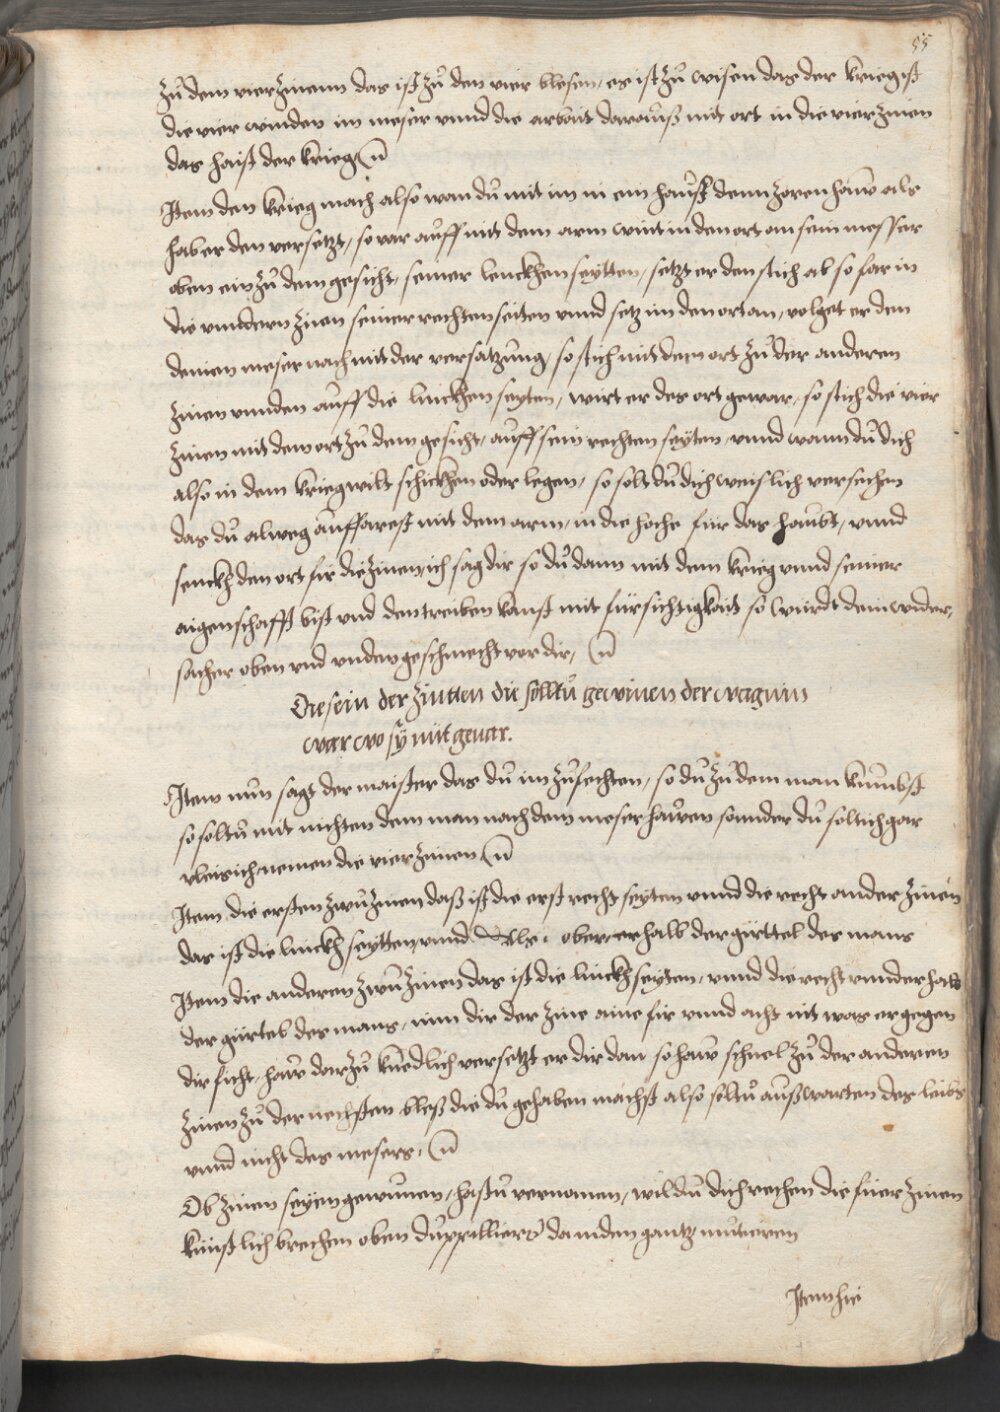 55
zu dem vier zinenn das ist zu den vier blesen, es ist zu wisen das der krieg ist
die vier winden im meser vnnd die arbait darauß mit ort in die vier zinen
das haist der krieg
Item den krieg mach also wan du mit im in ein haust deinn zoren haw als
haber den versetzt, so var auff mit dem arm wint in den ort an sein messer
oben ein zu dem gesicht, seiner lenckhen seytten, setzt er den stich ab so far in
die vnndern zinen seiner rechten seiten vnnd setz im den ort an, volget er dem
deinen meser nach mit der versatzung, so stich mit dem ort zu der anderen
zinen vnnden auff die linckhen seyten, wirt er des ort gewar, so stich die vier
zinen mit dem ort zu dem gesicht, auff sein rechten seyten, vnnd wann du dich
also in dem krieg wilt schickhen oder legen, so solt du dich weislich versechen
das du alweg auffarest mit dem arm, in die hoche für das haubt, vnnd
senckh den ort für die zinen, ich sag dir so du dann mit dem krieg vnnd seiner
aigenschafft bist vnd den treiben kanst mit fürsichtigkait so wurdt dein wider,
sacher oben vnd vnden geschmecht vor dir,
Die sein der zintten die solltu gewinen der wagnim
war wo sy nit gevar.
Item nun sagt der maister das du im zufechten, so du zu dem man kumbst
so soltu mit nichten dem man nach dem meser hawen sonnder du solt ich gar
vleisich nemen die vier zinen
Item die ersten zwu zinen daß ist die erst recht seyten vnnd die recht ander zinen
das ist die linckh seytten, vnnd Als, oberer halb der gürttel des mans
Item die anderen zwu zinen das ist die linckh seyten, vnnd die recht vnnderhalb
der gürtel des mans, nim dir der zine aine für vnnd acht nit was er gegen
dir ficht, haw darzu kuedlich versetzt er dir dan so haw schnel zu der anderen
zinen zu der nechsten bleß die du gehaben machst also soltu außwarten des leibs
vnnd nicht des mesers,
Ob zinen seyen gewunen, hastu vernomen, wildu dich rechen die füer zinen
künstlich brechen oben duppillier da niden gantz mutieren
Item hie